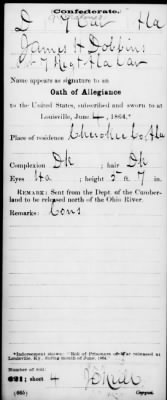 D 7 Cav Ala
James H Dobbins
Co. 7 Regt Ala Cav
Name appears as signature to an
Oath of Allegiance
to the United States, subscribed and sworn to at
Louisville, June 4, 1864.*
Place of residence Cherokee Co Ala
Complexion Dk ; hair Dk
Eyes Ha ; height 5 ft. 7 in.
REMARK: Sent from the Dept. of the Cumber-
land to be released north of the Ohio River.
Remarks: Cons
*Indorsement shows: "Roll of Prisoners of War released at
Louisville, Ky., during month of June, 1864."
Number of roll:
691; sheet 4
(665) Copyist.